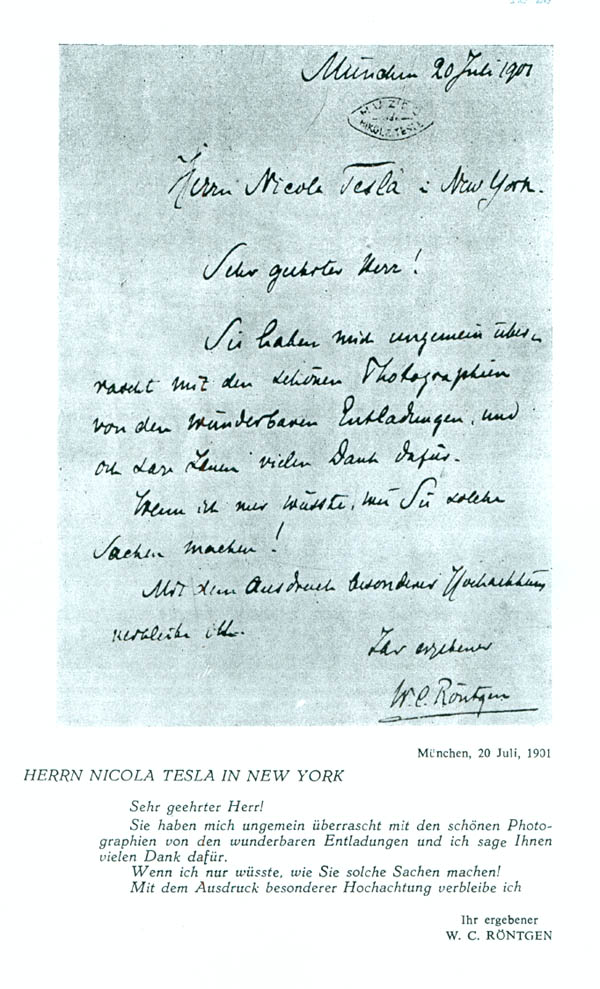 München 20 Juli 1901
MUZEJ
NIKOLE TESLE
Herrn Nicola Tesla i New York.
Sehr geehrter Herr!
Sie haben mich ungemein über-
rascht mit den schönen Photographien
von den wunderbaren Entladungen, und
ich sage Ihnen vielen Dank dafür.
Wenn ich nur wüsste, wie Sie solche
Sachen machen!
Mit dem Ausdruck besonderer Hochachtung
verbleibe ich
Ihr ergebener
W. C. Röntgen
München, 20 Juli, 1901
HERRN NICOLA TESLA IN NEW YORK
Sehr geehrter Herr!
Sie haben mich ungemein überrascht mit den schönen Photo-
graphien von den wunderbaren Entladungen und ich sage Ihnen
vielen Dank dafür.
Wenn ich nur wüsste, wie Sie solche Sachen machen!
Mit dem Ausdruck besonderer Hochachtung verbleibe ich
Ihr ergebener
W. C. RÖNTGEN